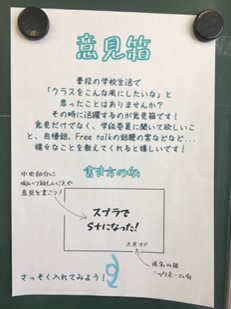 意見箱
普段の学校生活で
「クラスをこんな風にしたいな」と
思ったことはありませんか？
その時に活躍するのが意見箱です！
意見だけでなく、学級委員に聞いて欲しいこ
と、自慢話、Free talkの話題の案などなど...
様々なことを教えてくれると嬉しいです！
書き方の例
中央部分に
聞いて欲しいことや
意見を書こう！
スプラで
S+になった！
匿名可能
ニックネーム可
さっそく入れてみよう！